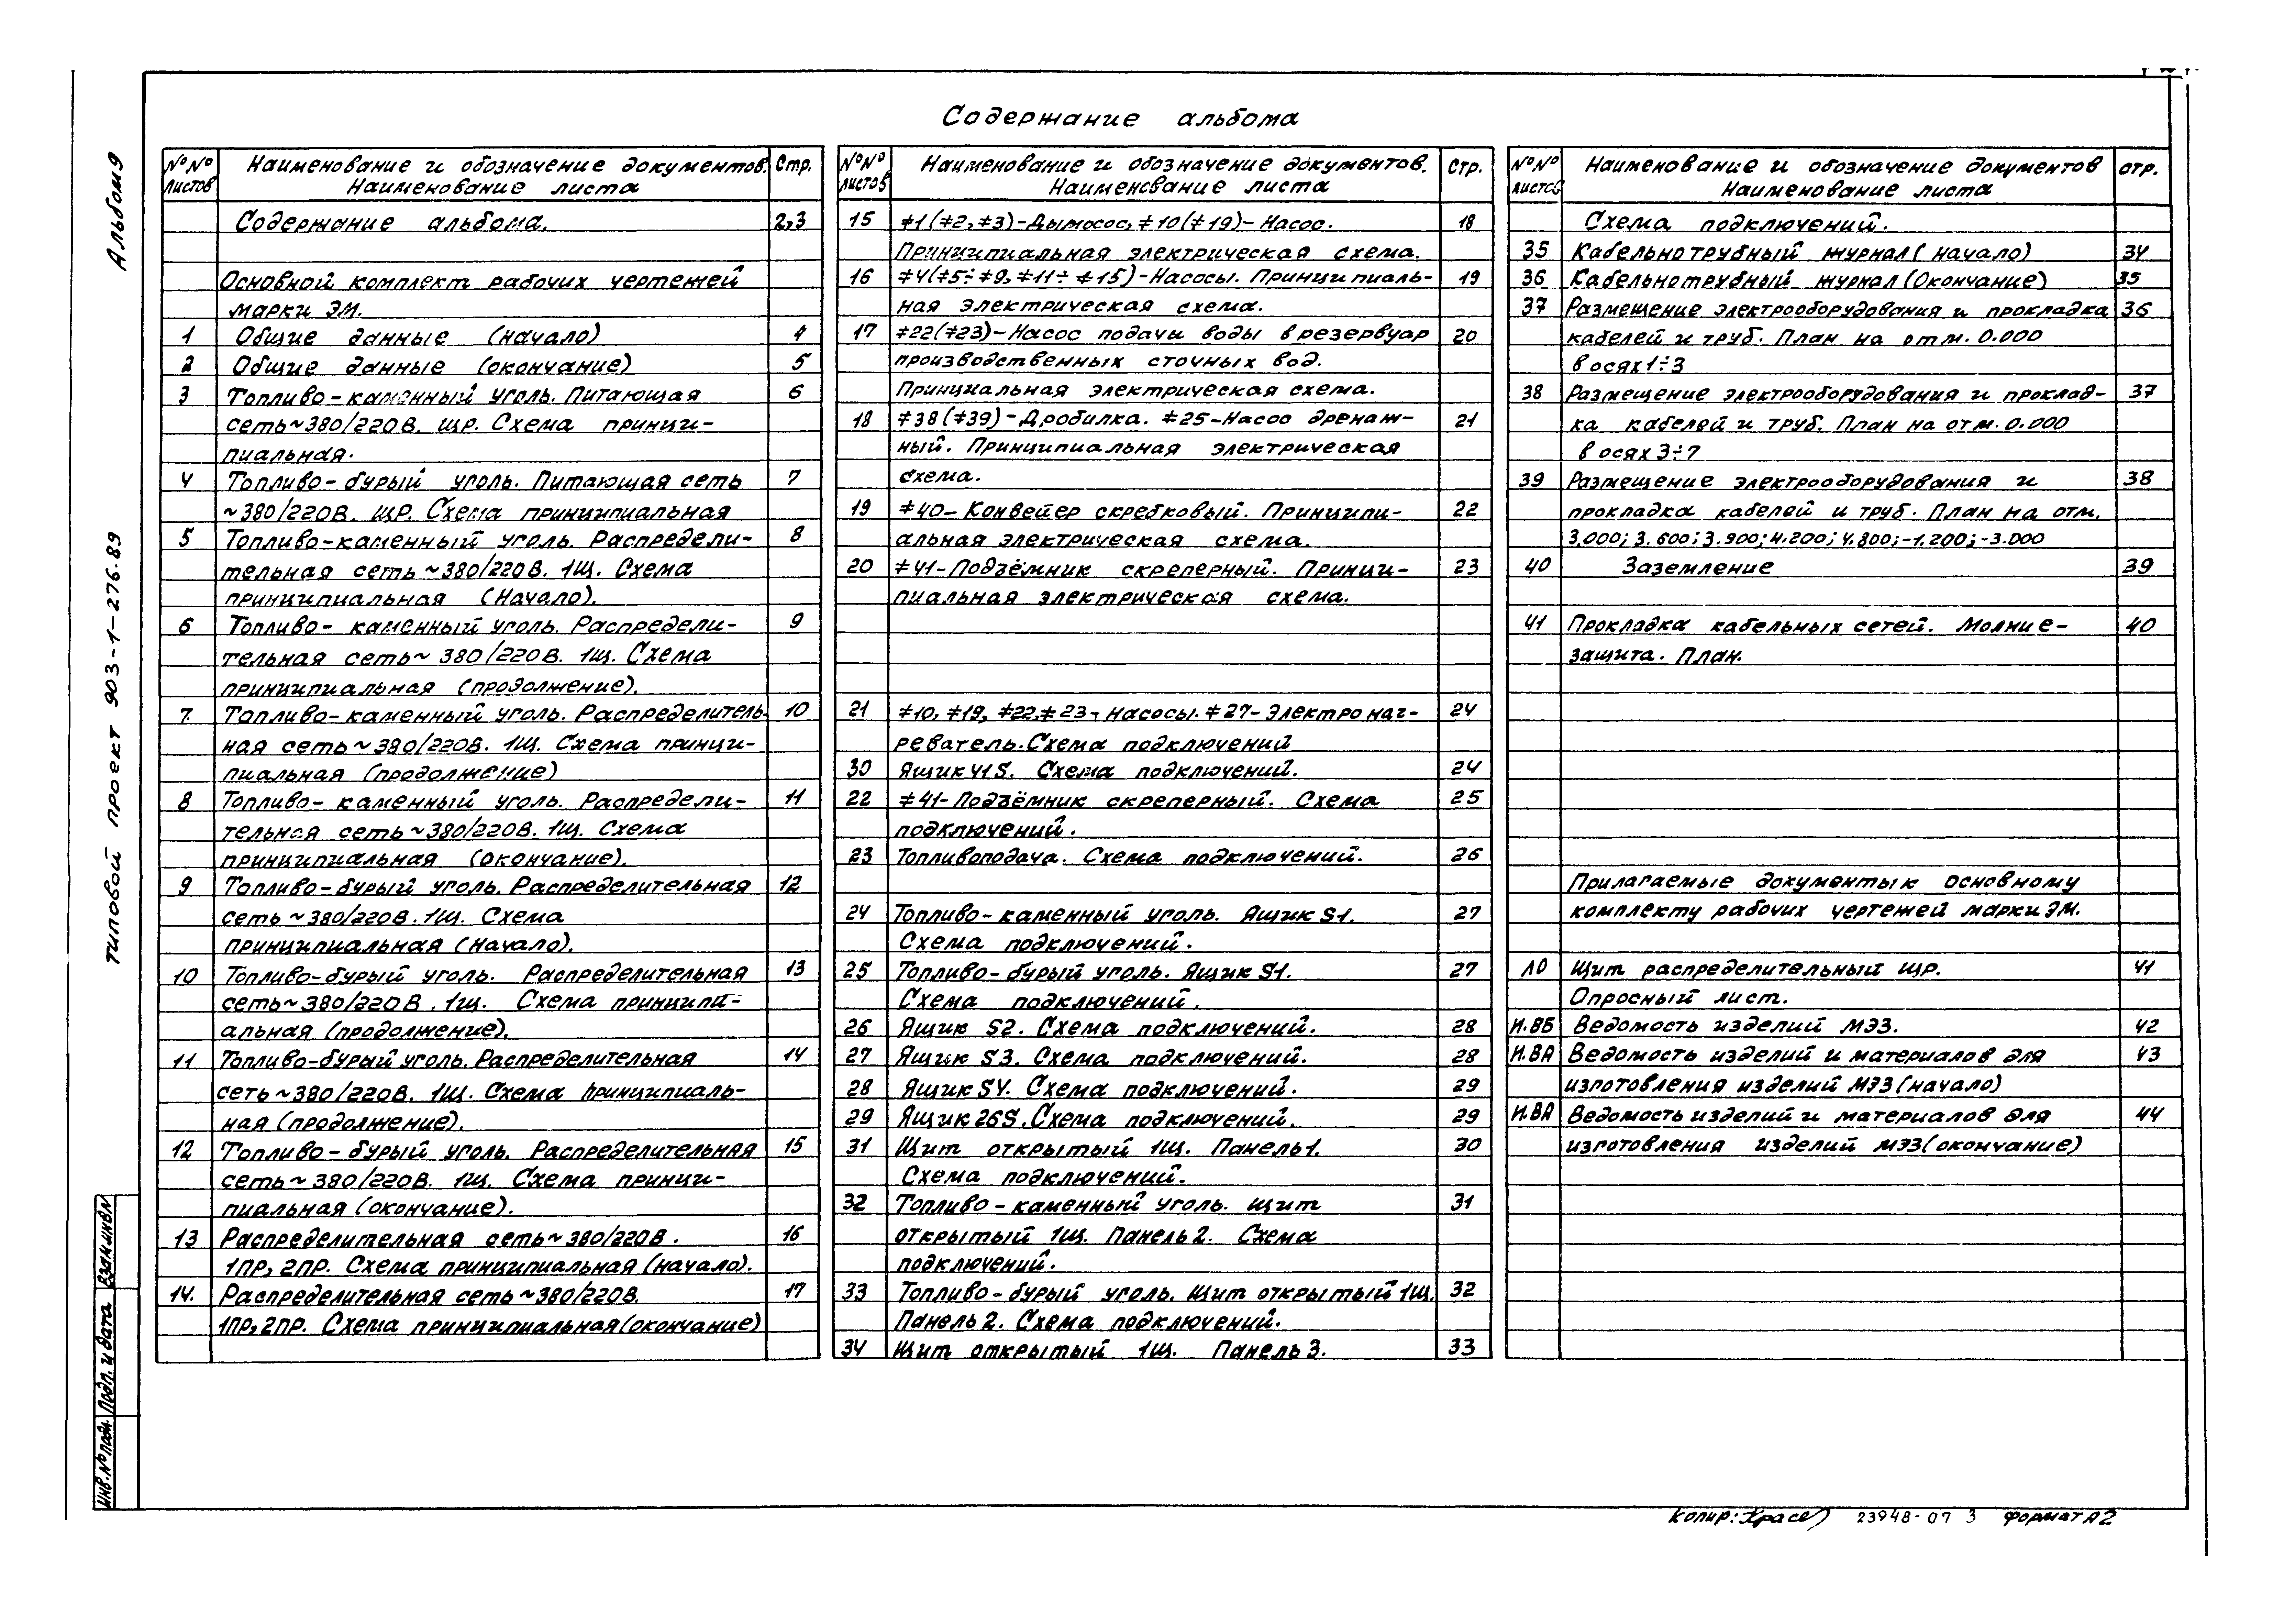 Содержание альбома
Альбом 9
типовой проект 903-1-276.89
№№ листов
Наименование и обозначение документов. Наименование листа
Стр.
Содержание альбома. 2,3
Основной комплект рабочих чертежей
марки ЭМ.
1 Общие данные (начало) 4
2 Общие данные (окончание) 5
3 Топливо-каменный уголь. Питающая 6
сеть~380/220В. ЩР. Схема принци-
пиальная.
4 Топливо-бурый уголь. Питающая сеть 7
~380/220В. ЩР. Схема принципиальная
5 Топливо-каменный уголь. Распредели- 8
тельная сеть~380/220В. 1Щ. Схема
принципиальная (Начало).
6 Топливо- каменный уголь. Распредели- 9
тельная сеть~380/220В. 1Щ. Схема
принципиальная (продолжение).
7. Топливо-каменный уголь. Распределитель- 10
ная сеть~380/220В. 1Щ. Схема принци-
пиальная (продолжение)
8 Топливо- каменный уголь. Распредели- 11
тельная сеть~380/220В. 1Щ. Схема
принципиальная (окончание).
9 Топливо-бурый уголь. Распределительная 12
сеть~380/220В. 1Щ. Схема
принципиальная (Начало).
10 Топливо-бурый уголь. Распределительная 13
сеть~380/220В. 1Щ. Схема принципи-
альная (продолжение).
11 Топливо-бурый уголь. Распределительная 14
сеть~380/220В. 1Щ. Схема принципиаль-
ная (продолжение).
12 Топливо-бурый уголь. Распределительная 15
сеть~380/220В. 1Щ. Схема принци-
пиальная (окончание).
13 Распределительная сеть~380/220В. 16
1ПР, 2ПР. Схема принципиальная (начало).
14. Распределительная сеть~380/220В. 17
1ПР, 2ПР. Схема принципиальная (окончание)
№№ листов
Наименование и обозначение документов. Наименование листа
Стр.
15 ≠1(≠2,≠3)-Дымосос, ≠10(≠19)- Насос. 18
Принципиальная электрическая схема.
16 ≠4(≠5÷≠9, ≠11÷≠15)-Насосы. Принципиаль- 19
ная электрическая схема.
17 ≠22(≠23)-Насос подачи воды в резервуар 20
производственных сточных вод.
Принциальная электрическая схема.
18 ≠38(≠39)-Дробилка. ≠25-Насос дренаж- 21
ный. Принципиальная электрическая
схема.
19 ≠40- Конвейер скребковый. Принципи- 22
альная электрическая схема.
20 ≠41-Подъёмник скреперный. Принци- 23
пиальная электрическая схема.
21 ≠10, ≠19, ≠22,≠23- Насосы. ≠27- Электронаг- 24
реватель. Схема подключений
30 Ящик 41S. Схема подключений. 24
22 ≠41-Подъёмник скреперный. Схема 25
подключений.
23 Топливоподача. Схема подключений. 26
24 Топливо-каменный уголь. Ящик S1. 27
Схема подключений.
25 Топливо-бурый уголь. Ящик S1. 27
Схема подключений.
26 Ящик S2. Схема подключений. 28
27 Ящик S3. Схема подключений. 28
28 Ящик S4. Схема подключений. 29
29 Ящик 26S. Схема подключений. 29
31 Щит открытый 1Щ. Панель 1. 30
Схема подключений.
32 Топливо-каменный уголь. Щит 31
открытый 1Щ. Панель 2. Схема
подключений.
33 Топливо-бурый уголь. Щит открытый 1Щ. 32
Панель 2. Схема подключений.
34 Щит открытый 1Щ. Панель 3. 33
№№ листов
Наименование и обозначение документов Наименование листа
стр.
Схема подключений.
35 Кабельнотрубный журнал (начало) 34
36 Кабельнотрубный журнал (Окончание) 35
37 Размещение электрооборудования и прокладка 36
кабелей и труб. План на отм. 0.000
в осях 1÷3
38 Размещение электрооборудования и проклад- 37
ка кабелей и труб. План на отм. 0.000
в осях 3÷7
39 Размещение электрооборудования и 38
прокладка кабелей и труб. План на отм.
3.000; 3.600; 3.900; 4.200; 4.800; -1.200; -3.000
40 Заземление 39
41 Прокладка кабельных сетей. Молние- 40
защита. План.
Прилагаемые документы к основному
комплекту рабочих чертежей марки ЭМ.
ЛО Щит распределительный ЩР. 41
Опросный лист.
И.ВБ Ведомость изделий МЭЗ. 42
И.ВА Ведомость изделий и материалов для 43
изготовления изделий МЭЗ (начало)
И.ВА Ведомость изделий и материалов для 44
изготовления изделий МЭЗ (окончание)
Взам.инв№
Подп. и дата
Инв.№ подл.
Копир: 23948-07 3 Формат А2